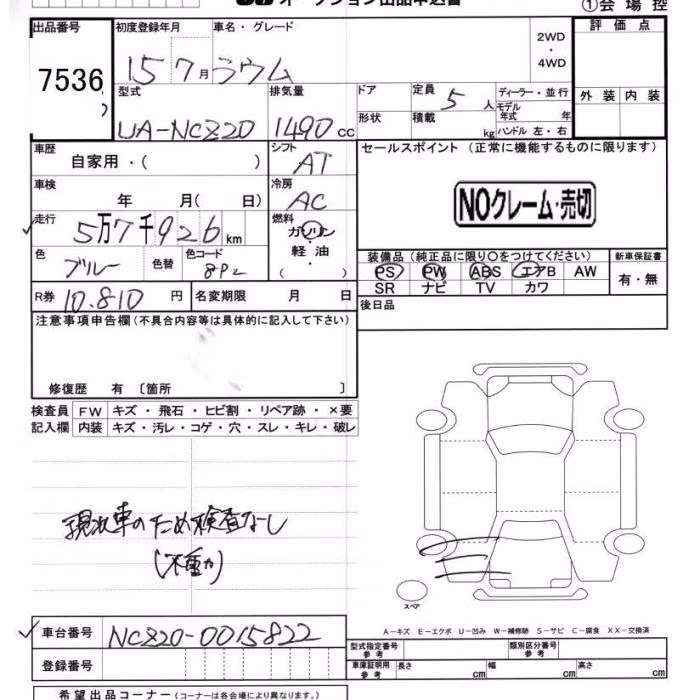 オークション出品申込書
①会場控
出品番号
7536
初度登録年月
車名・グレード
15 7月 ラウム
2WD
・
4WD
評価点
外装 内装
型式
UA-NCZ20
排気量
1490 CC
ドア
形状
定員 5 人
積載 kg
ディーラー・並行
モデル年式 年
ハンドル 左・右
車歴
自家用・( )
シフト
AT
車検
年 月( 日)
冷房
AC
走行
5万7千926 km
燃料
ガソリン
・
軽油
・
( )
色
ブルー
色替
色コード
8P2
R券 10.810 円
名変期限 月 日
セールスポイント (正常に機能するものに限ります)
NOクレーム・売切
装備品(純正品に限り○をつけてください)
新車保証書
PS PW ABS エアB AW
有・無
SR ナビ TV カワ
後日品
注意事項申告欄(不具合内容等は具体的に記入して下さい)
修復歴 有 〔箇所 〕
検査員 FW キズ・飛石・ヒビ割・リペア跡・×要
記入欄 内装 キズ・汚レ・コゲ・穴・スレ・キレ・破レ
現状車のため検査なし
(不動力)
スペア
A-キズ E-エクボ U-凹み W-補修跡 S-サビ C-腐食 XX-交換済
車台番号 NCZ20-0015822
登録番号
型式指定番号 参考
類別区分番号 参考
車庫証明用 参考
長さ cm
幅 cm
高さ cm
希望出品コーナー(コーナーは各会場により異なります。)